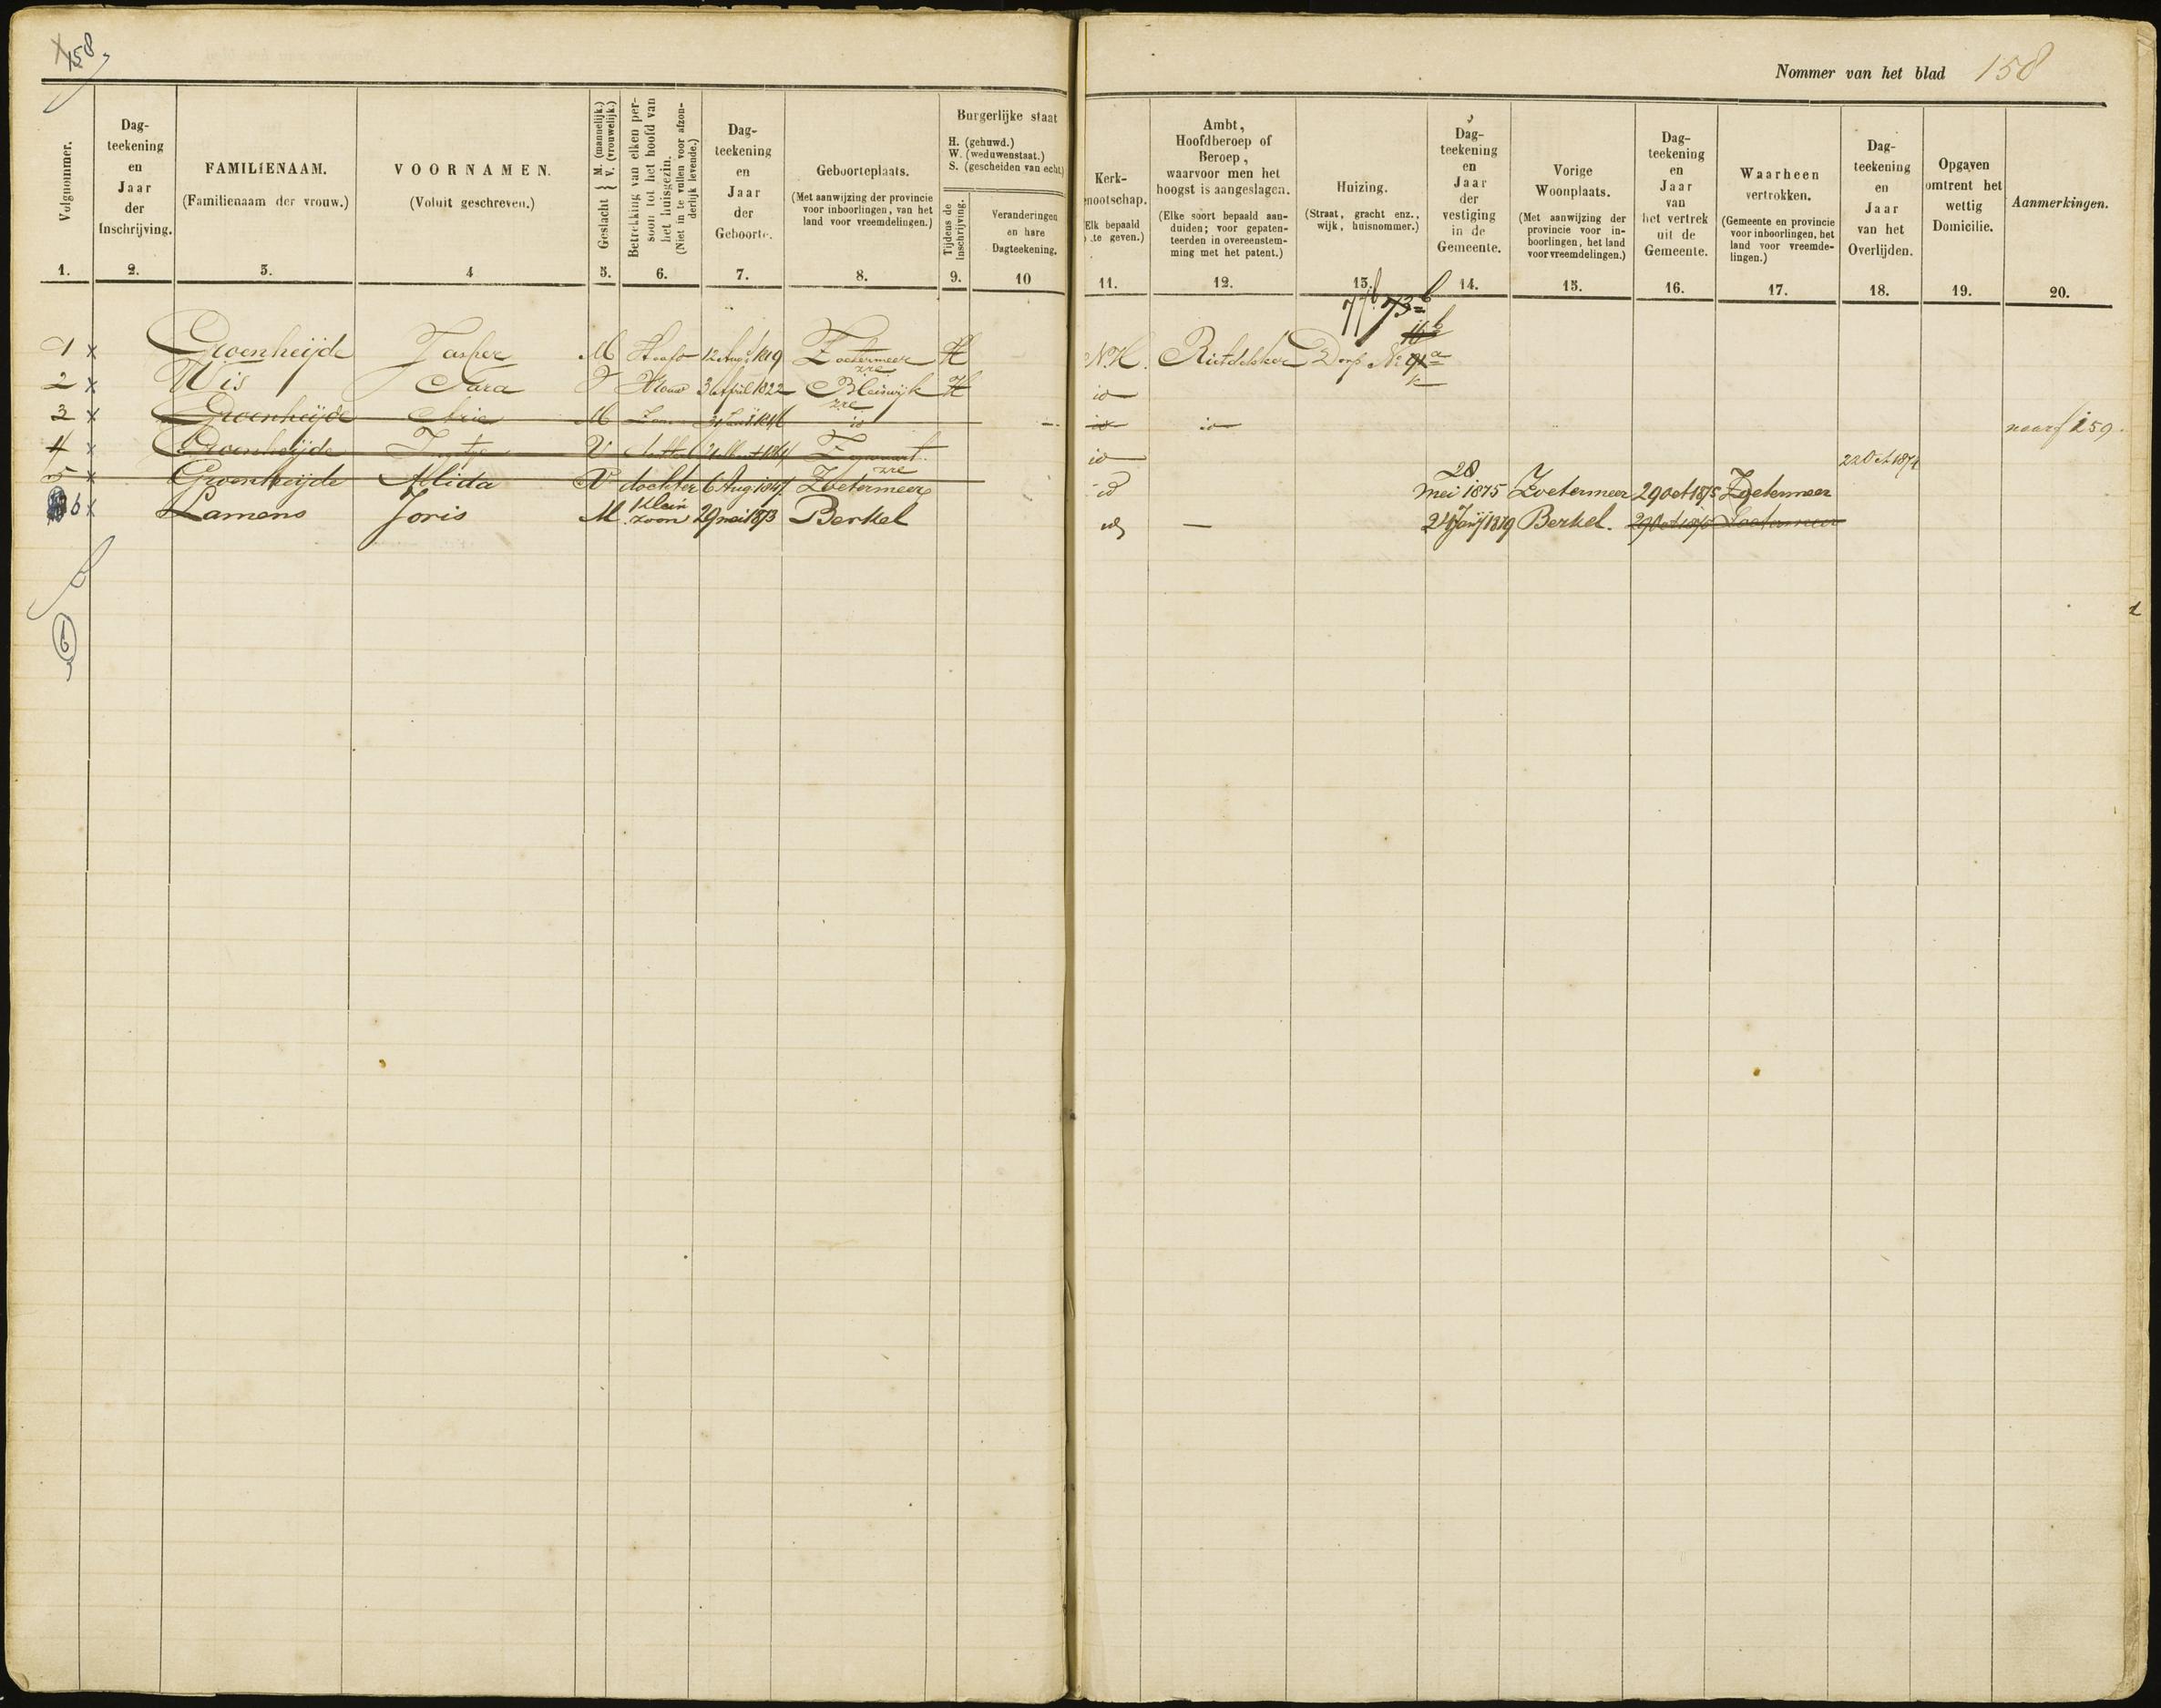 158
Nommer van het blad 158
Volgnommer.
1.
Dag-
teekening
en
Jaar
der
Inschrijving.
2.
FAMILIENAAM.
(Familienaam der vrouw.)
3.
VOORNAMEN.
(Voluit geschreven.)
4
Geslacht { M. (mannelijk.) V. (vrouwelijk.)
5.
Betrekking van elken per-
soon tot het hoofd van
het huisgezin.
(Niet in te vullen voor afzon-
derlijk levende.)
6.
Dag-
teekening
en
Jaar
der
Geboorte.
7.
Geboorteplaats.
(Met aanwijzing der provincie
voor inboorlingen, van het
land voor vreemdelingen.)
8.
Burgerlijke staat
H. (gehuwd.)
W. (weduwenstaat.)
S. (gescheiden van echt)
Tijdens de
inschrijving.
9.
Veranderingen
en hare
Dagteekening.
10
Kerk-
nootschap.
Elk bepaald
te geven.)
11.
Ambt,
Hoofdberoep of
Beroep,
waarvoor men het
hoogst is aangeslagen.
(Elke soort bepaald aan-
duiden; voor gepaten-
teerden in overeenstem-
ming met het patent.)
12.
Huizing.
(Straat, gracht enz.,
wijk, huisnommer.)
13.
Dag-
teekening
en
Jaar
der
vestiging
in de
Gemeente.
14.
Vorige
Woonplaats.
(Met aanwijzing der
provincie voor in-
boorlingen, het land
voor vreemdelingen.)
15.
Dag-
teekening
en
Jaar
van
het vertrek
uit de
Gemeente.
16.
Waarheen
vertrokken.
(Gemeente en provincie
voor inboorlingen, het
land voor vreemde-
lingen.)
17.
Dag-
teekening
en
Jaar
van het
Overlijden.
18.
Opgaven
omtrent het
wettig
Domicilie.
19.
Aanmerkingen.
20.
77b 73b
1 x Groenheijde Jasper M Hoofd 12 Aug 1819 Zoetermeer H N.H. Rietdekker Dorp No
2 x Wis Sara V Vrouw 3 April 1822 Bleiswijk H id
3 x Groenheijde Arie M Zoon id id id naar f 259.
4 x Groenheijde V dochter Zegwaart id 22 Oct 1874
5 x Groenheijde Alida V dochter 6 Aug 1847 Zoetermeer id 28 mei 1875 Zoetermeer 29 oct 1875 Zoetermeer
6 x Lamens Joris M Klein zoon 29 mei 1873 Berkel id — 24 Junij 1879 Berkel. 29 Oct 1875 Zoetermeer
6